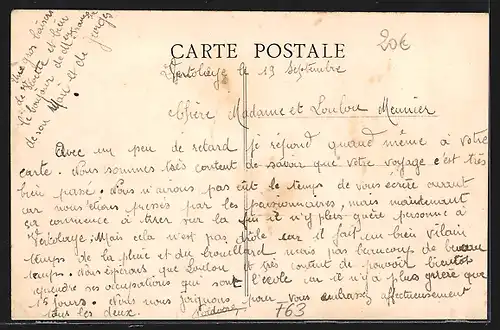 CARTE POSTALE
20€
le 13 Septembre
Chère Madame et Loulou Meunier
Avec un peu de retard je répond quand même à votre
carte. Nous sommes très content de savoir que votre voyage c'est très
bien passé. Nous n'avons pas eût le temps de vous écrire avant
car nous étions pressés par les pensionnaires, mais maintenant
ça commence à tirer sur la fin il n'y plus guère personne à
Mais cela n'est pas drôle car il fait un bien vilain
temps de la pluie et du brouillard mais pas beaucoup de beau
temps. Nous espérons que Loulou et très content de pouvoir bientôt
reprendre ses occupations qui sont l'école car il n'y a plus guère que
15 jours. Nous nous joignons pour vous embrasser affectueusement
tous les deux.
763
Une gros baisers
de et bien
le bonjour de
de son